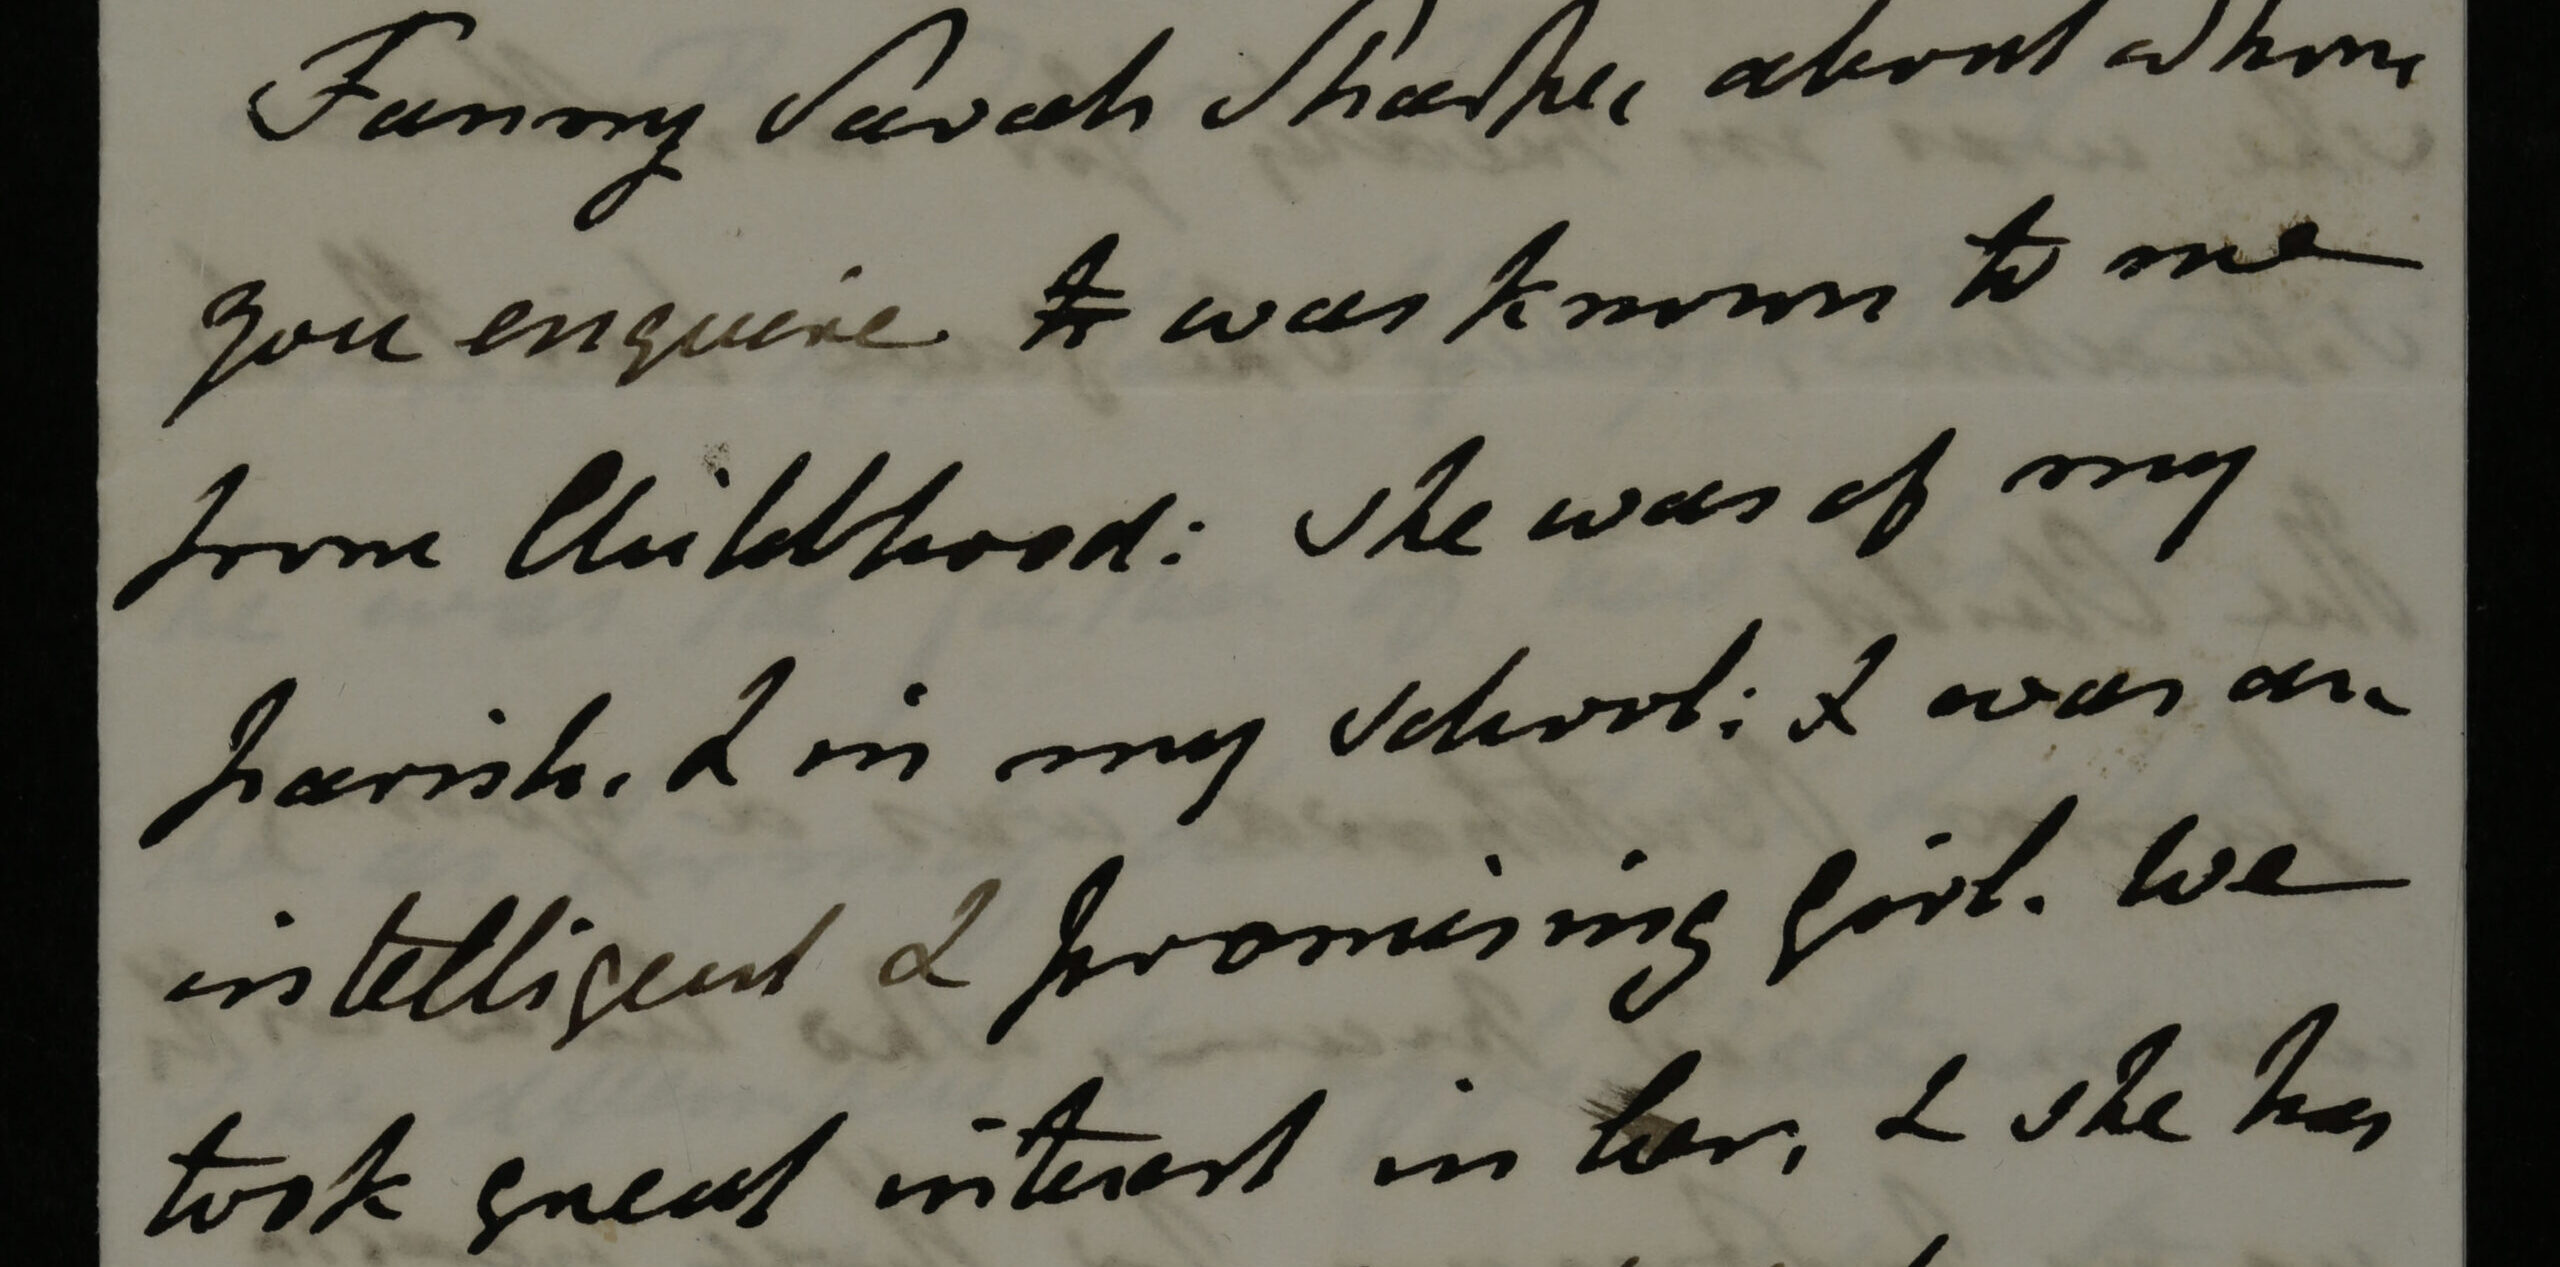 Fanny Sarah Sharpe, about whom
you enquire to was known to me
from Childhood: she was of my
parish, & in my school; & was an
intelligent & promising girl. We
took great interest in her, & she has